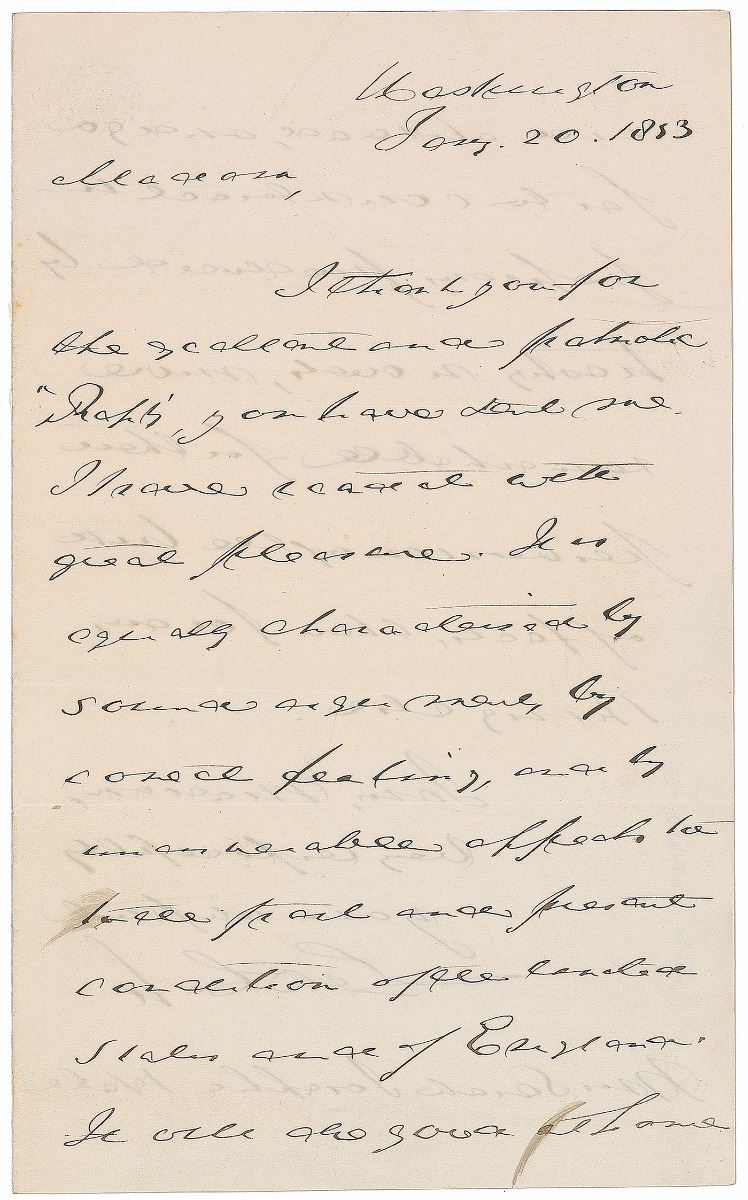 Washington
Jany. 20. 1853
Madam,
I thank you for
the excellent and patriotic
"Draft", you have sent me.
I have read it with
great pleasure. It is
equally characterised by
sound argument, by
correct feeling, and by
unanswerable appeals to
to the past and present
condition of the United
States and of England.
It will do good at home